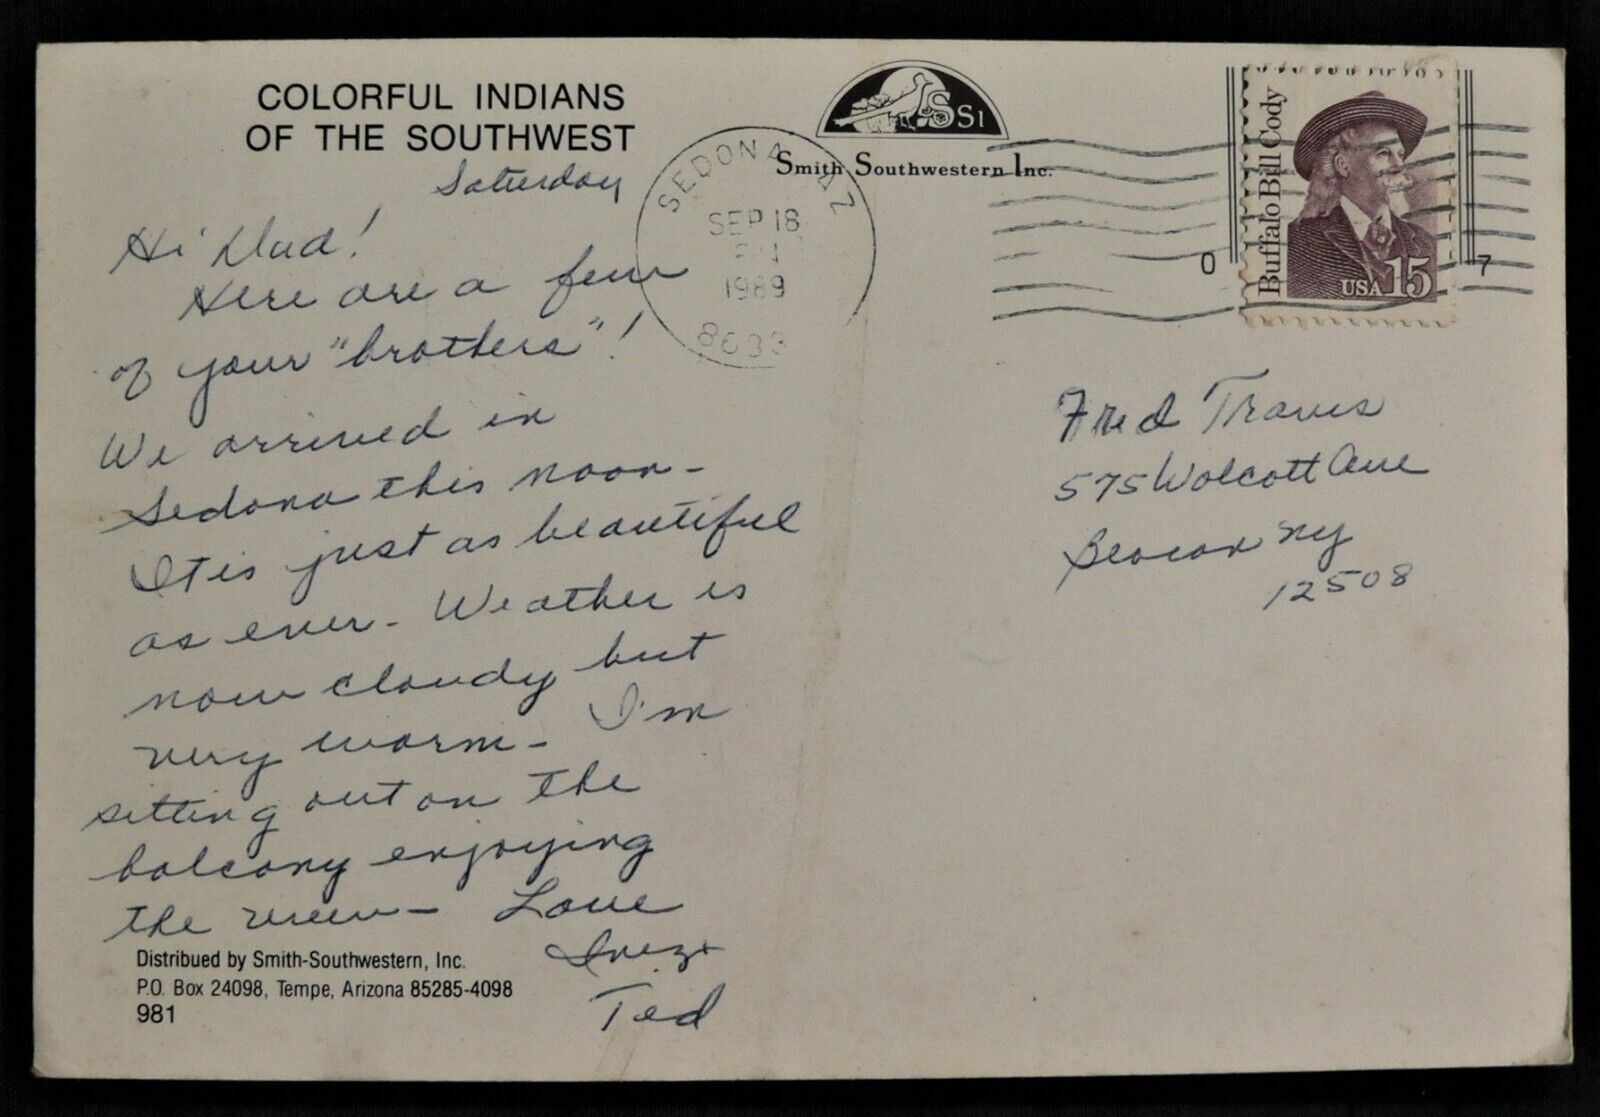 COLORFUL INDIANS
OF THE SOUTHWEST
Saturday
Hi Dad!
Here are a few
of your "brothers"!
We arrived in
Sedona this noon-
It is just as beautiful
as ever- Weather is
now cloudy but
very warm- I'm
sitting out on the
balcony enjoying
the view- Love
Inez +
Ted
Distribued by Smith-Southwestern, Inc.
P.O. Box 24098, Tempe, Arizona 85285-4098
981
SSI
Smith Southwestern Inc.
SEDONA AZ
SEP 18
1989
8633
Buffalo Bill Cody
USA 15
0 7
Fred Travis
575 Wolcott Ave
Beacon NY
12508